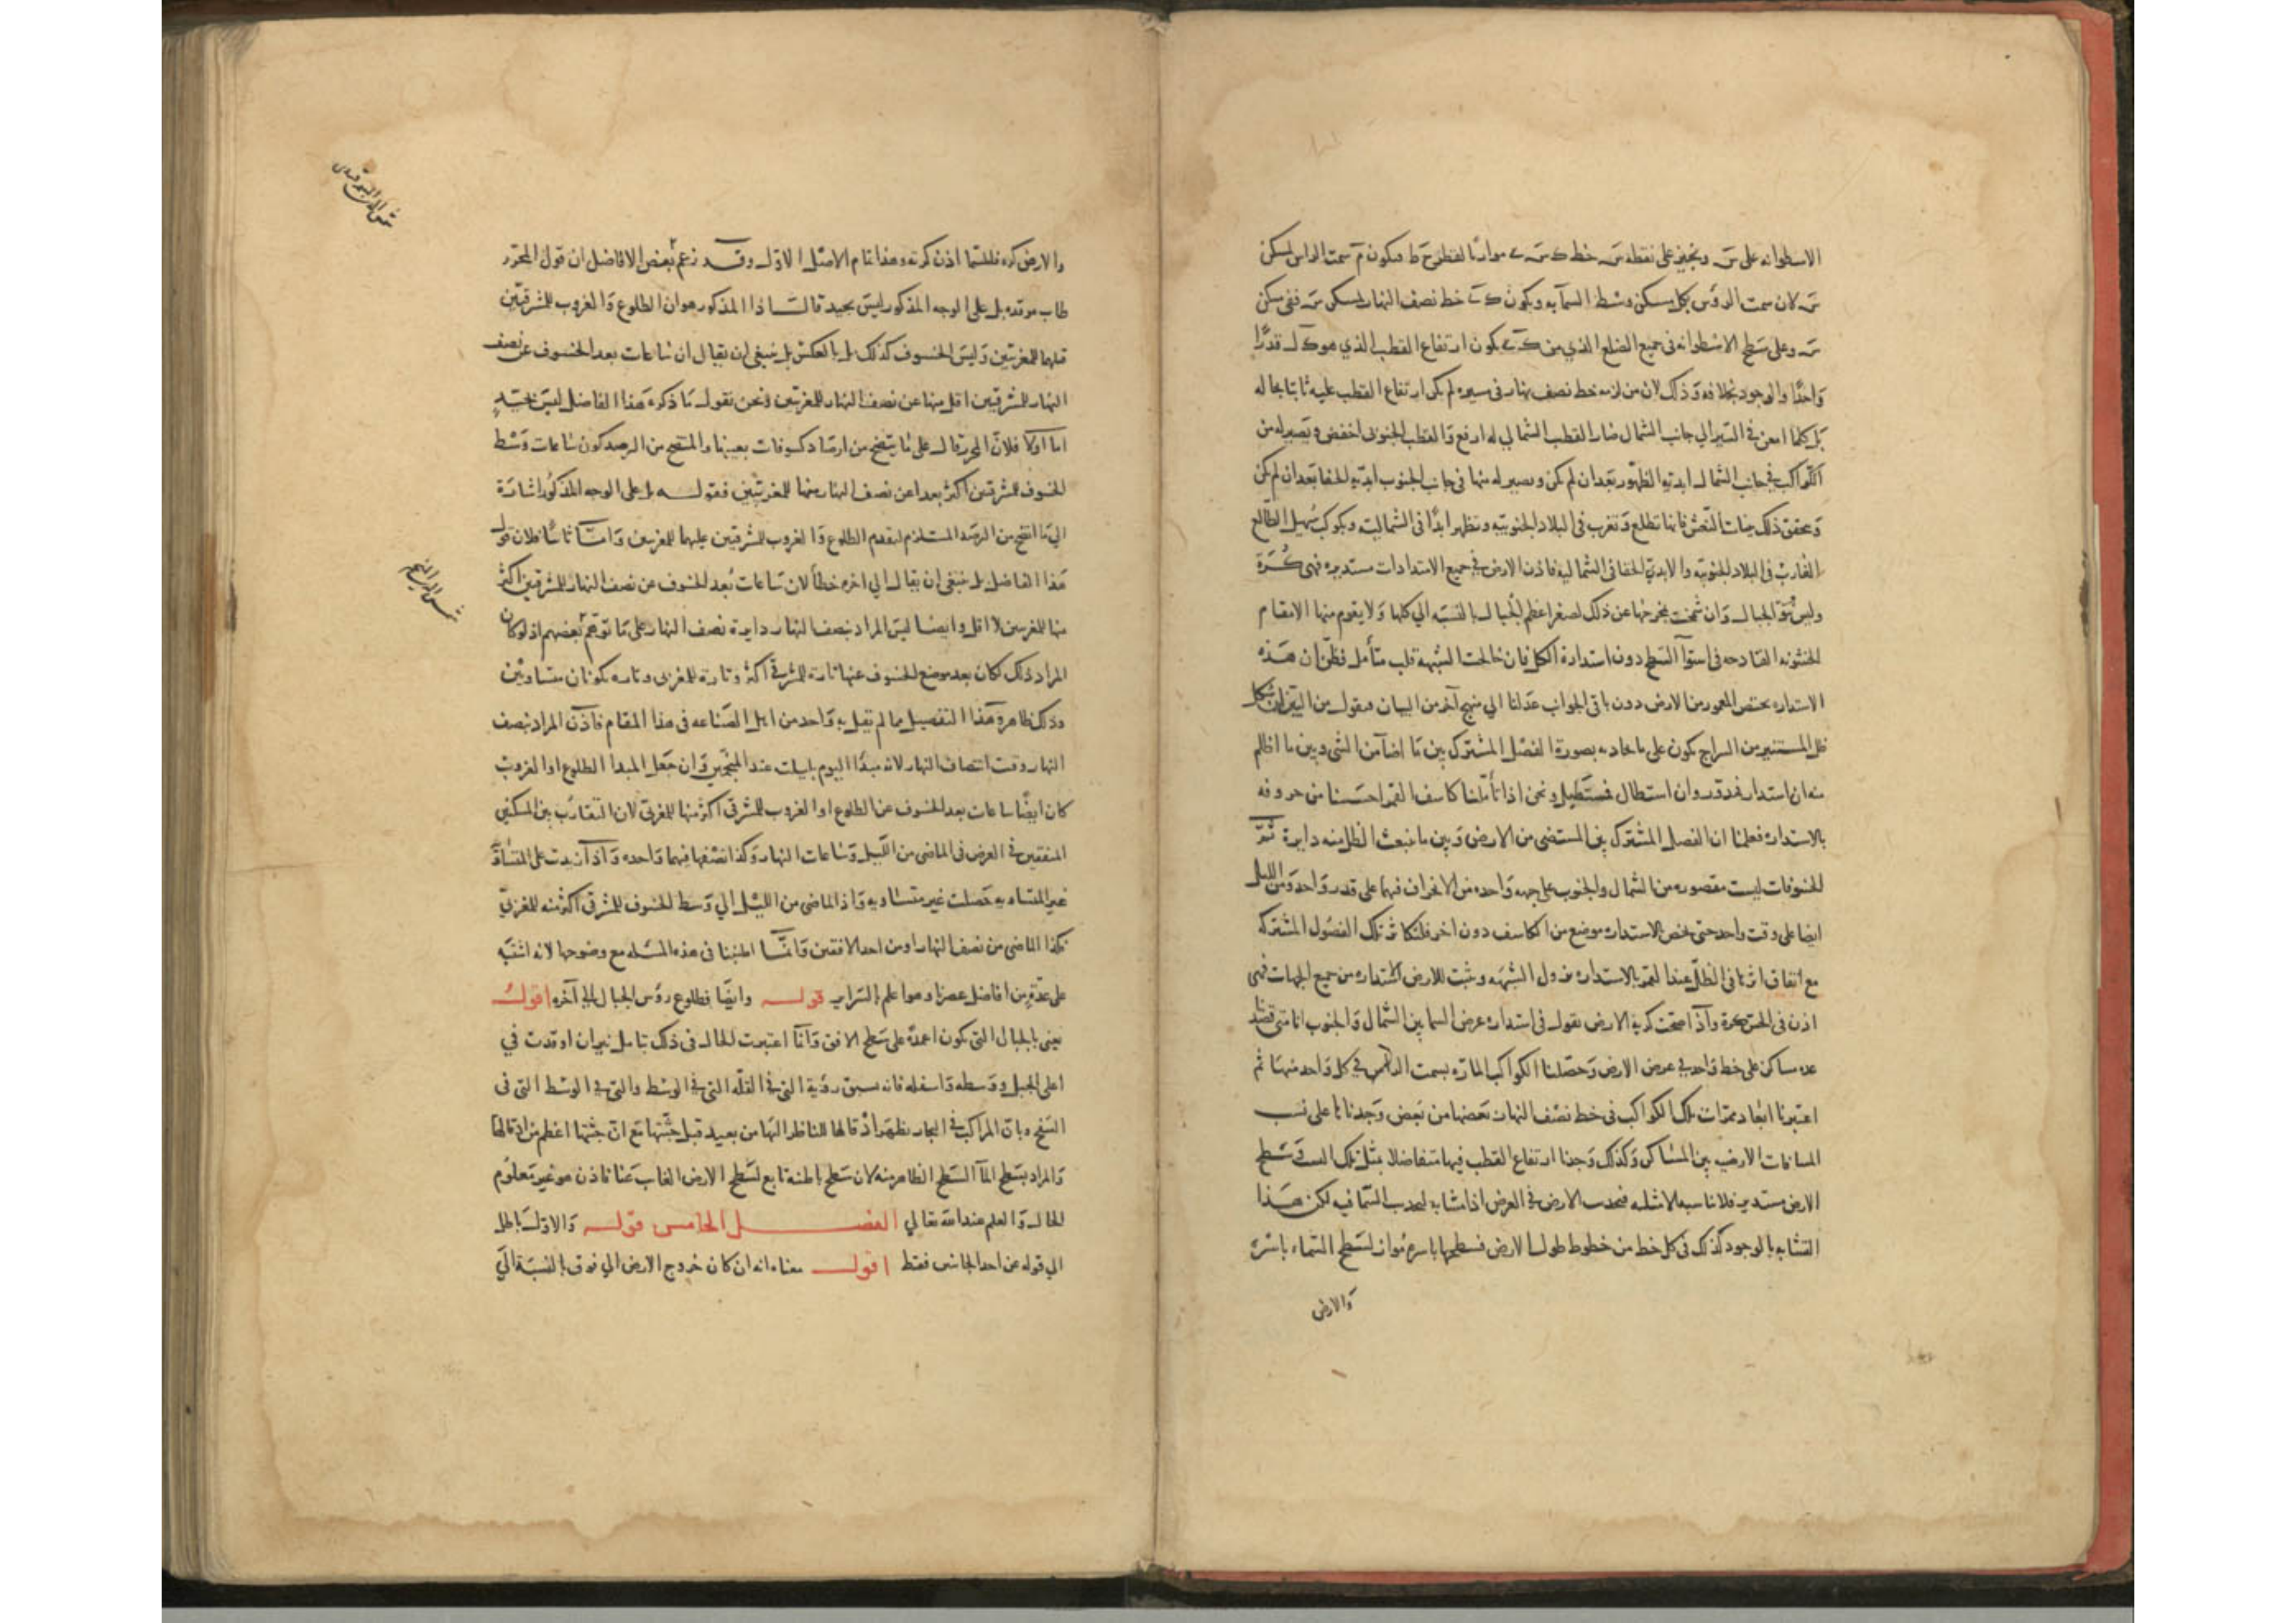 الاسطوانه على س ويجيز على نقطه س خط موازيا لقطر ح ط فيكون م سمت الراس لمسكن
س لان سمت الرؤس بكل مسكن وسط السمآ به ويكون خط نصف النهار لمسكن س ففي مسكن
س وعلى سطح الاسطوانه في جميع الضلع الذي من يكون ارتفاع القطب الذي هو قدرًا
واحدًا والوجود بخلافه وذلك لان من لزمه خط نصف نهار في سيره لم يكن ارتفاع القطب عليه ثابتا بحاله
بل كلما امعن في السير الي جانب الشمال صار القطب الشمالي له ارفع والقطب الجنوبي اخفض ويصير له من
الكواكب في جانب الشمال ابدية الظهور بعد ان لم يكن ويصير له منها في جانب الجنوب ابدية الخفا بعد ان لم يكن
ويحقق ذلك بنات النعش فانها تطلع وتغرب في البلاد الجنوبيه وتظهر ابدًا في الشماليه وبكوكب سهيل الطالع
الغارب في البلاد الجنوبيه والابدي الخفا في الشماليه فاذن الارض في جميع الامتدادات مستديره فهي كرة
وليس نتو الجبال وان شمخت بمخرجها عن ذلك لصغر اعظم الجبال بالنسبه الي كلها ولا يقوم منها الا مقام
الخشونه القادحه في استوآ السطح دون استدارة الكل فان خالجت الشبهه قلب متأمل فظن ان هذه
الاستداره يختص المعمور من الارض دون باقي الجوانب عدلنا الي منهج آخر من البيان فنقول من البين ان شكل
ظل المستنير من السراج يكون على ما يحاذيه بصورة الفصل المشترك بين ما اضآ من الشي وبين ما اظلم
منه ان استدار فمدور وان استطال فمستطيل ونحن اذا تأملنا كاسف القمر احسسنا من حروفه
بالاستداره فعلمنا ان الفصل المشترك بين المستضي من الارض وبين ما ينبعث الظل منه دايرة ثم
الخسوفات ليست مقصوره من الشمال والجنوب على جهه واحده من الانحراف فيهما على قدر واحد ومن الليل
ايضا على وقت واحد حتى يختص الاستداره موضع من الكاسف دون اخر فلتكاثر تلك الفصول المشتركه
مع اتفاق اثرها في الظل عند القمر بالاستداره فزول الشبهه وثبت للارض استداره من جميع الجهات فهي
اذن في الحس كرة واذا صحت كرية الارض نقول في استداره عرض السما بين الشمال والجنوب انا متى قصدنا
عده مساكن على خط واحد في عرض الارض وحصلنا الكواكب الماره بسمت الراس في كل واحد منها ثم
اعتبرنا ابعاد ممرات تلك الكواكب في خط نصف النهار بعضها من بعض وجدناها على نسب
المسافات الارضيه بين المساكن وكذلك وجدنا ارتفاع القطب فيها متفاضلا بمثل تلك النسب وسطح
الارض مستدير فلا يناسبه الا مثله فتحدب الارض في العرض اذا مشابه لتحدب السما فيه لكن هذا
التشابه بالوجود كذلك في كل خط من خطوط طول الارض فسطحها باسره مواز لسطح السماء باسره
والارض
والارض كره فللسما اذن كرته وهذا تمام الاصل الاول وقد زعم بعض الافاضل ان قول المحرر
طاب مرقده بل على الوجه المذكور ليس بجيد قال اذا المذكور هو ان الطلوع والغروب للمشرقيين
قبلهما للمغربيين وليس الخسوف كذلك بل بالعكس بل ينبغي ان يقال ان ساعات بعد الخسوف عن نصف
النهار للمشرقيين اقل منها عن نصف النهار للمغربيين ونحن نقول ما ذكره هذا الفاضل ليس بجيد
اما اولا فلان المحرر قال على ما يتضح من ارصاد كسوفات بعينها والمتضح من الرصد كون ساعات وسط
الخسوف للمشرقيين اكثر بعدا عن نصف النهار منها للمغربيين فقوله بل على الوجه المذكور اشارة
الي ما اتضح من الرصد المستلزم لتقدم الطلوع والغروب للمشرقيين عليهما للمغربيين واما ثانيًا فلان قول
هذا الفاضل بل ينبغي ان يقال الي اخره خطأ لان ساعات بُعد الخسوف عن نصف النهار للمشرقيين اكثر
منها للمغربيين لا اقل وايضا ليس المراد بنصف النهار دايرة نصف النهار على ما توهم بعضهم اذ لو كان
المراد ذلك لكان بعد موضع الخسوف عنها تارة للمشرقي اكثر وتارة للمغربي وتاره يكونان متساويين
وذلك ظاهر وهذا التفصيل مما لم يقل به واحد من اهل الصناعه في هذا المقام فاذن المراد بنصف
النهار وقت انتصاف النهار لانه مبدا اليوم بليلته عند المنجمين وان جعل المبدا الطلوع او الغروب
كان ايضًا ساعات بعد الخسوف عن الطلوع او الغروب للمشرقي اكثر منها للمغربي لان التقارب بين المسكنين
المتفقين في العرض في الماضي من الليل وساعات النهار وكذا نصفها فيهما واحده واذا زيدت على المتساويه
غير المتساويه حصلت غير متساويه واذ الماضي من الليل الي وسط الخسوف للمشرقي اكثر منه للمغربي
فكذا الماضي من نصف النهار او من احد الافقين وانما اطنبنا في هذه المسئله مع وضوحها لانه اشتبه
على عدة من افاضل عصرنا وهو اعلم بالسراير قوله وايضًا فطلوع رؤس الجبال الي آخره اقول
يعني بالجبال التي تكون اعمدة على سطح الافق وانما اعتبرت الحال في ذلك بتامل نيران اوقدت في
اعلى الجبل ووسطه واسفله فانه يسبق رؤية التي في القله التي في الوسط والتي في الوسط التي في
السفح وبان المراكب في البحار يظهر اذقالها للناظر اليها من بعيد قبل جثتها مع ان جثتها اعظم من اذقالها
والمراد بسطح المآ السطح الظاهر منه لان سطح باطنه تابع لسطح الارض الغايب عنا فاذن هو غير معلوم
الحال والعلم عند الله تعالي الفصل الخامس قوله والاول باطل
الي قوله عن احد الجانبين فقط اقول معناه انه ان كان خروج الارض الي فوق بالنسبة الي